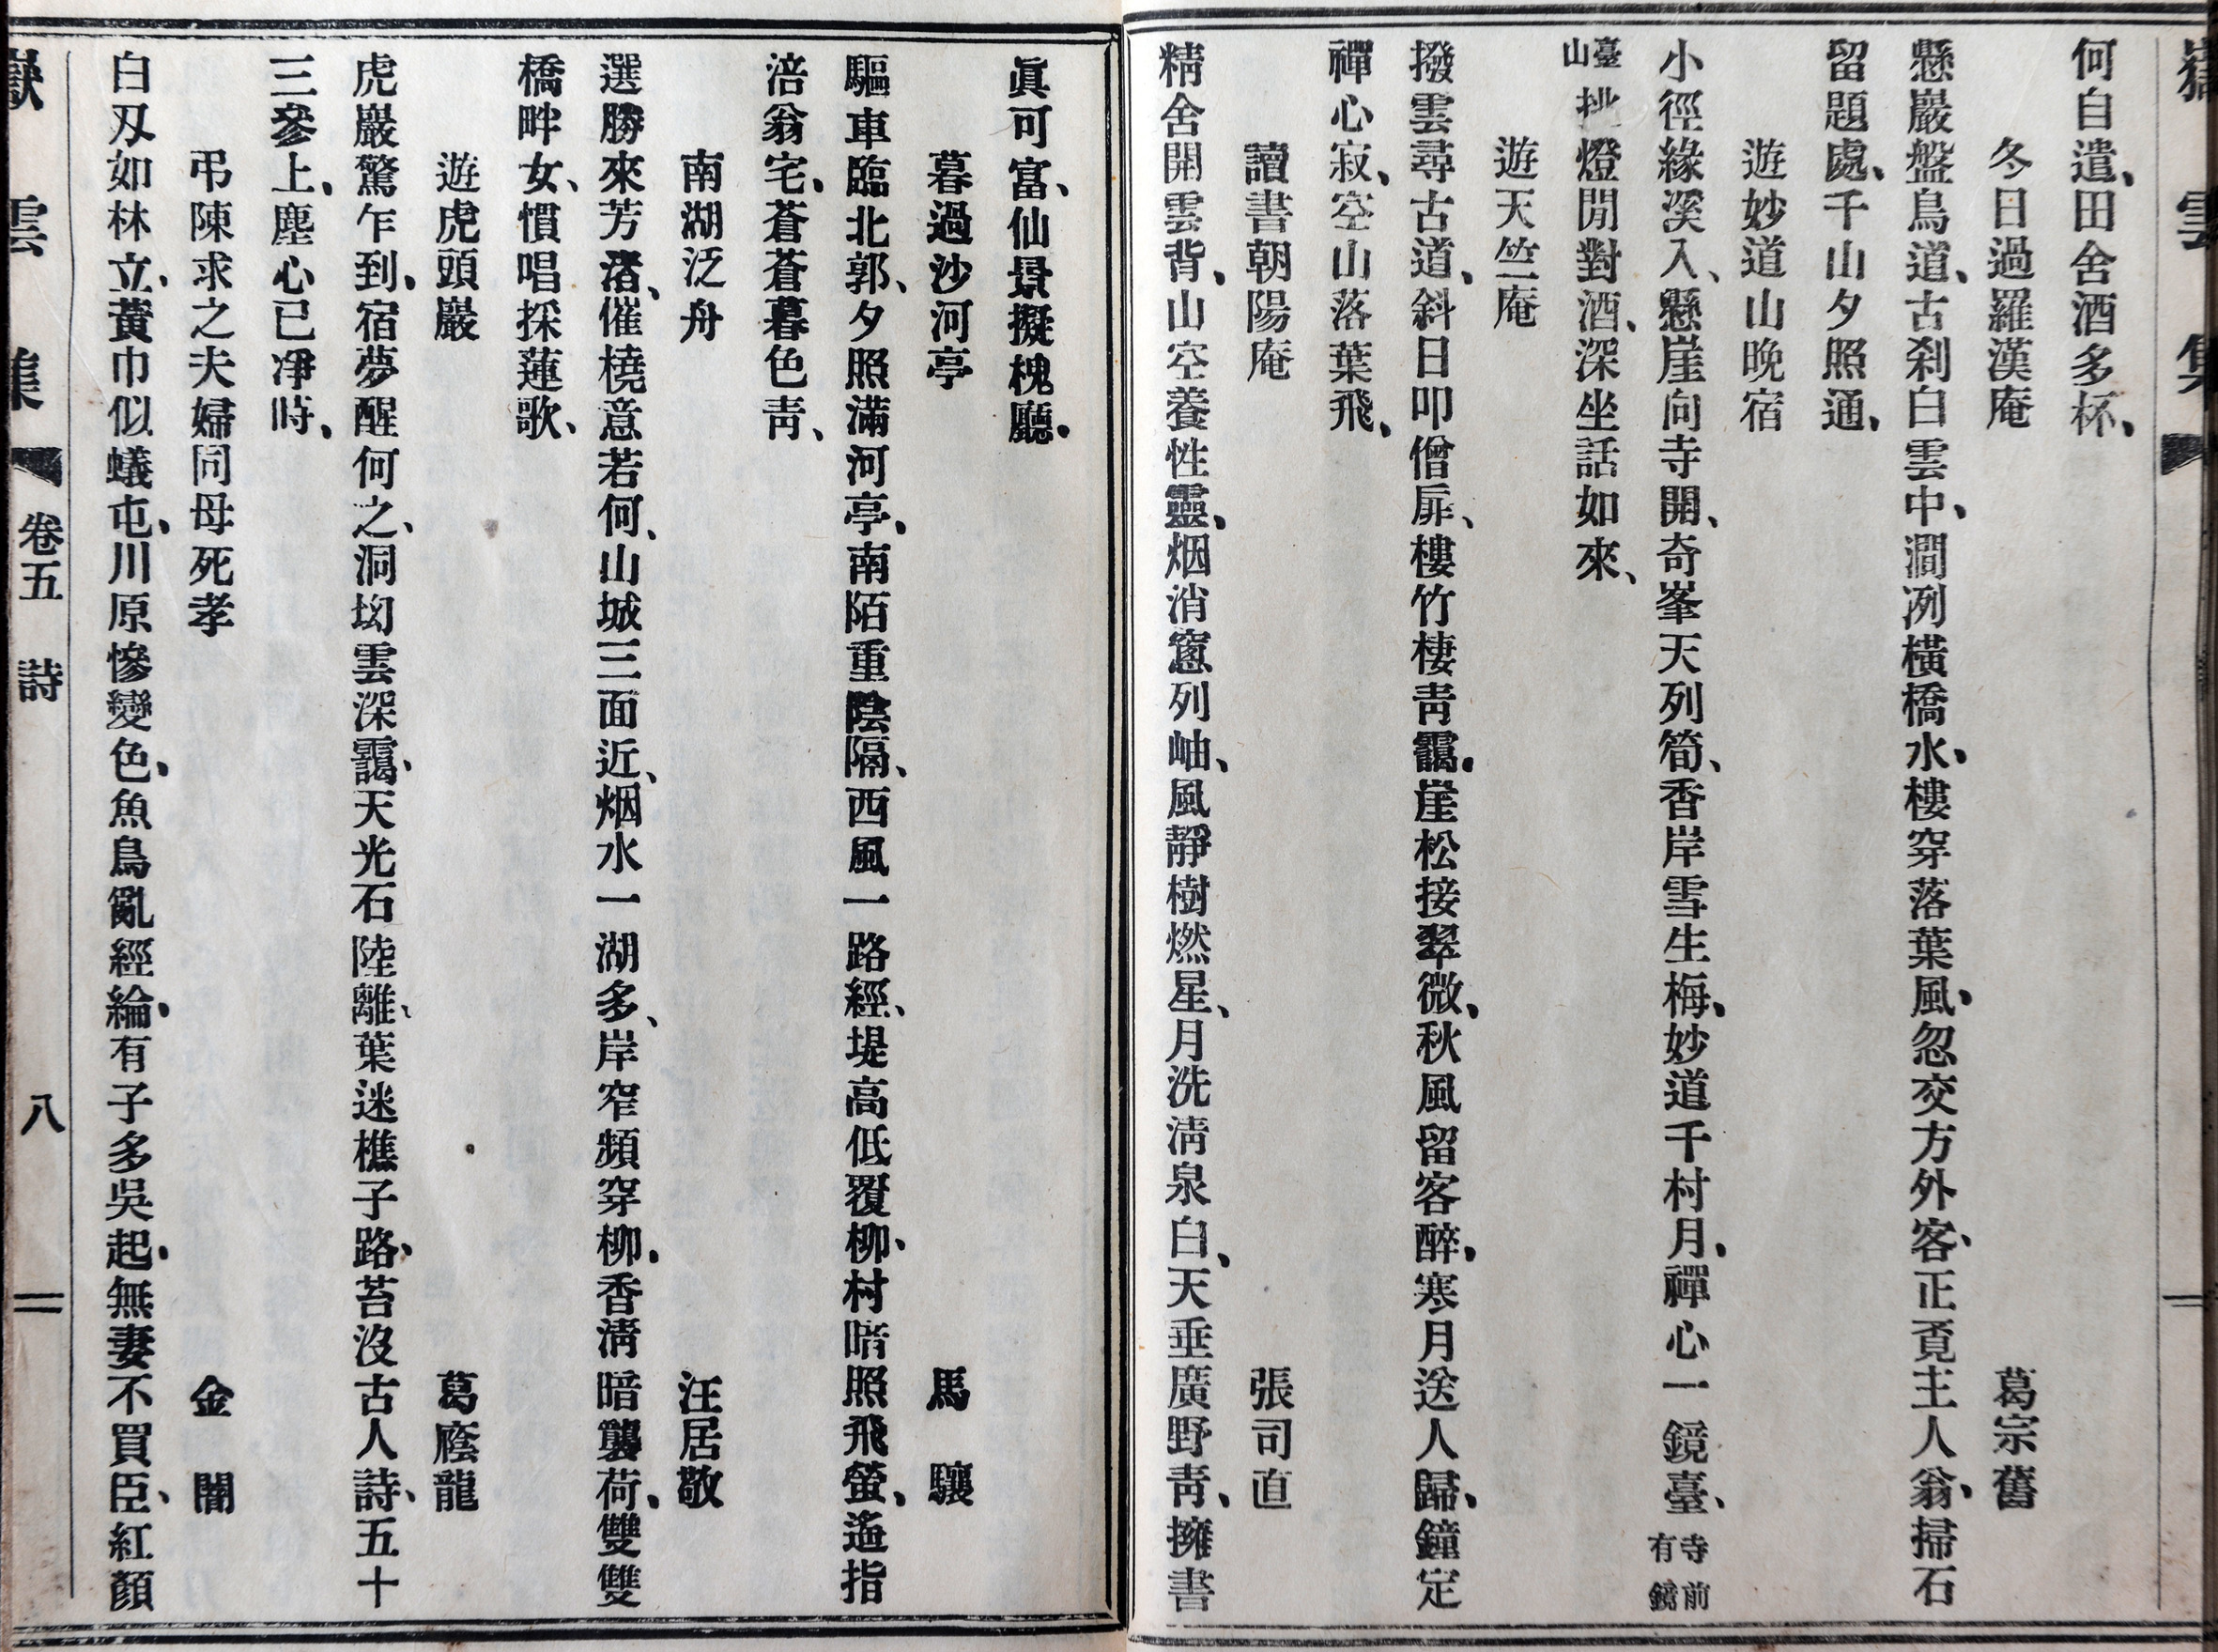 嶽雲集
何自遣、田舍酒多杯、
冬日過羅漢庵　葛宗舊
懸巖盤鳥道、古刹白雲中、澗冽橫橋水、樓穿落葉風、忽交方外客、正覔主人翁、掃石
留題處、千山夕照通、
遊妙道山晚宿
小徑緣溪入、懸崖向寺開、奇峯天列筍、香岸雪生梅、妙道千村月、禪心一鏡臺、寺前有鏡
臺山挑燈閒對酒、深坐話如來、
遊天竺庵
撥雲尋古道、斜日叩僧扉、樓竹棲靑靄、崖松接翠微、秋風留客醉、寒月送人歸、鐘定
禪心寂、空山落葉飛、
讀書朝陽庵　張司直
精舍開雲背、山空養性靈、烟消窻列岫、風靜樹燃星、月洗淸泉白、天垂廣野靑、擁書
眞可富、仙景擬槐廳、
暮過沙河亭　馬驤
驅車臨北郭、夕照滿河亭、南陌重陰隔、西風一路經、堤高低覆柳、村暗照飛螢、遙指
涪翁宅、蒼蒼暮色靑、
南湖泛舟　汪居敬
選勝來芳渚、催橈意若何、山城三面近、烟水一湖多、岸窄頻穿柳、香淸暗襲荷、雙雙
橋畔女、慣唱採蓮歌、
遊虎頭巖　葛䕃龍
虎巖驚乍到、宿夢醒何之、洞坳雲深靄、天光石陸離、葉迷樵子路、苔沒古人詩、五十
三參上、塵心已凈時、
弔陳求之夫婦同母死孝　金闇
白刃如林立、黃巾似蟻屯、川原慘變色、魚鳥亂經綸、有子多吳起、無妻不買臣、紅顏
嶽雲集　卷五　詩　八